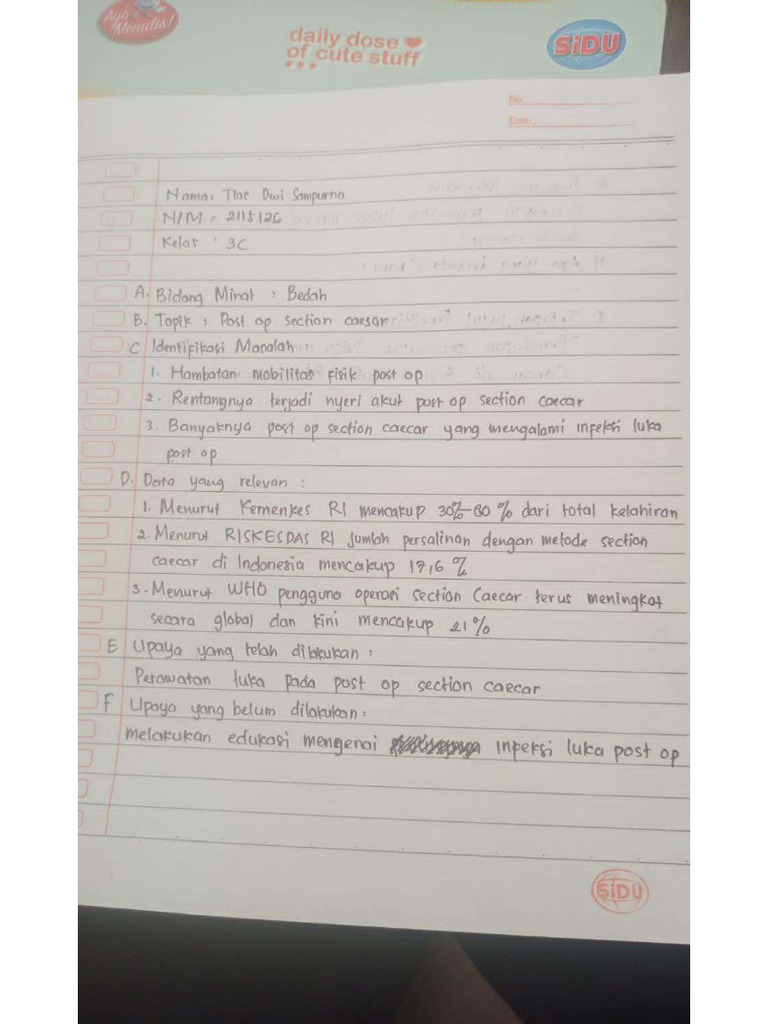 Ayo Menulis!
daily dose
of cute stuff
SiDU
No.
Date:
Nama: Tiar Dwi Sampurno
NIM = 2115126
Kelas : 3C
A. Bidang Minat : Bedah
B. Topik : Post op section caesar
C Identifikasi Masalah :
1. Hambatan mobilitas fisik post op
2. Rentangnya terjadi nyeri akut post op section caecar
3. Banyaknya post op section caecar yang mengalami infeksi luka
post op
D. Data yang relevan :
1. Menurut Kemenkes RI mencakup 30%-80 % dari total kelahiran
2. Menurut RISKESDAS RI Jumlah persalinan dengan metode section
caecar di Indonesia mencakup 17,6 %
3. Menurut WHO pengguna operasi section Caecar terus meningkat
secara global dan kini mencakup 21%
E Upaya yang telah dilakukan :
Perawatan luka pada post op section caecar
F Upaya yang belum dilakukan :
melakukan edukasi mengenai infeksi luka post op
SiDU